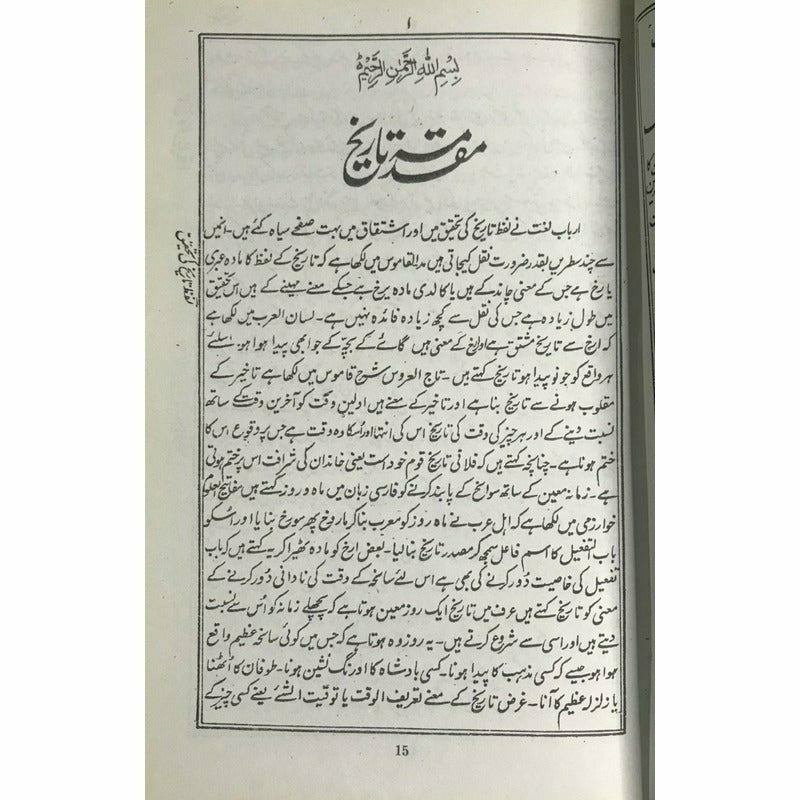 ا
بِسْمِ اللهِ الرَّحْمٰنِ الرَّحِیْمِ
مقدمۂ تاریخ
ارباب لغت نے لفظ تاریخ کی تحقیق میں اور اشتقاق میں بہت صفحے سیاہ کئے ہیں۔ انہیں
سے چند سطریں بقدر ضرورت نقل کیجاتی ہیں مدالقاموس میں لکھا ہے کہ تاریخ کے لفظ کا مادہ عبری
یارخ ہے جس کے معنی چاند کے ہیں یا کالدی مادہ یرخ ہے جسکے معنے مہینے کے ہیں اس تحقیق
میں طول زیادہ ہے جس کی نقل سے کچھ زیادہ فائدہ نہیں ہے۔ لسان العرب میں لکھا ہے
کہ ارخ سے تاریخ مشتق ہے اور ارخ کے معنی ہیں گائے کے بچہ کے جو ابھی پیدا ہوا ہو۔ اسلئے
ہر واقع کو جو نو پیدا ہو تاریخ کہتے ہیں۔ تاج العروس شرح قاموس میں لکھا ہے تاخیر کے
مقلوب ہونے سے تاریخ بنا ہے اور تاخیر کے معنے ہیں اولین وقت کو آخرین وقت کے ساتھ
نسبت دینے کے اور ہر چیز کی وقت کی تاریخ اس کی انتہا اور اُسکا وہ وقت ہے جس پر وقوع اس کا
ختم ہوتا ہے۔ چنانچہ کہتے ہیں کہ فلانی تاریخ قوم خود است یعنی خاندان کی شرافت اس پر ختم ہوتی
ہے۔ زمانہ معین کے ساتھ سوانح کے پابند کرنے کو فارسی زبان میں ماہ و روز کہتے ہیں مفاتیح العلوم
خوارزمی میں لکھا ہے کہ اہل عرب نے ماہ روز کو معرب بنا کر ماروخ پھر مورخ بنایا اور اُسکو
باب تفعیل کا اسم فاعل سمجھ کر مصدر تاریخ بنالیا۔ بعض ارخ کو مادہ ٹھیرا کر یہ کہتے ہیں کہ باب
تفعیل کی خاصیت دُور کرنے کی بھی ہے اس لئے سانحہ کے وقت کی نادانی دُور کرنے کے
معنی کو تاریخ کہتے ہیں عرف میں تاریخ ایک روز معین ہوتا ہے کہ پچھلے زمانہ کو اُس سے نسبت
دیتے ہیں اور اسی سے شروع کرتے ہیں۔ یہ روز وہ ہوتا ہے کہ جس میں کوئی سانحہ عظیم واقع
ہوا ہو جیسے کہ کسی مذہب کا پیدا ہونا۔ کسی بادشاہ کا اورنگ نشین ہونا۔ طوفان کا اُٹھنا
یا زلزلہ عظیم کا آنا۔ غرض تاریخ کے معنے تعریف الوقت یا توقیت الشے یعنے کسی چیز کے
15